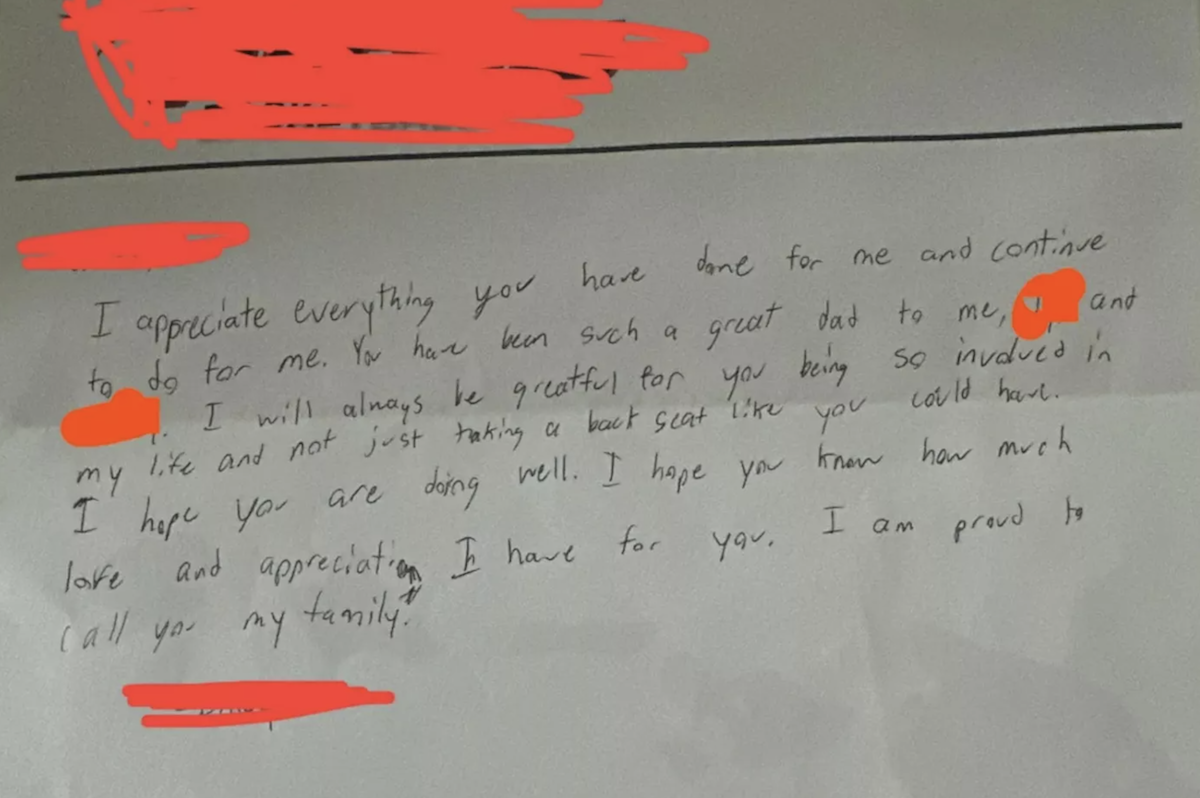 I appreciate everything you have done for me and continue
to do for me. You have been such a great dad to me, and
I will always be greatful for you being so involved in
my life and not just taking a back seat like you could have.
I hope you are doing well. I hope you know how much
love and appreciation I have for you. I am proud to
call you my family.